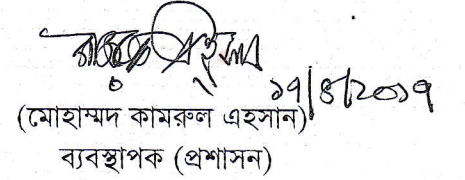 ১৭/৪/২০১৭
(মোহাম্মদ কামরুল এহসান)
ব্যবস্থাপক (প্রশাসন)